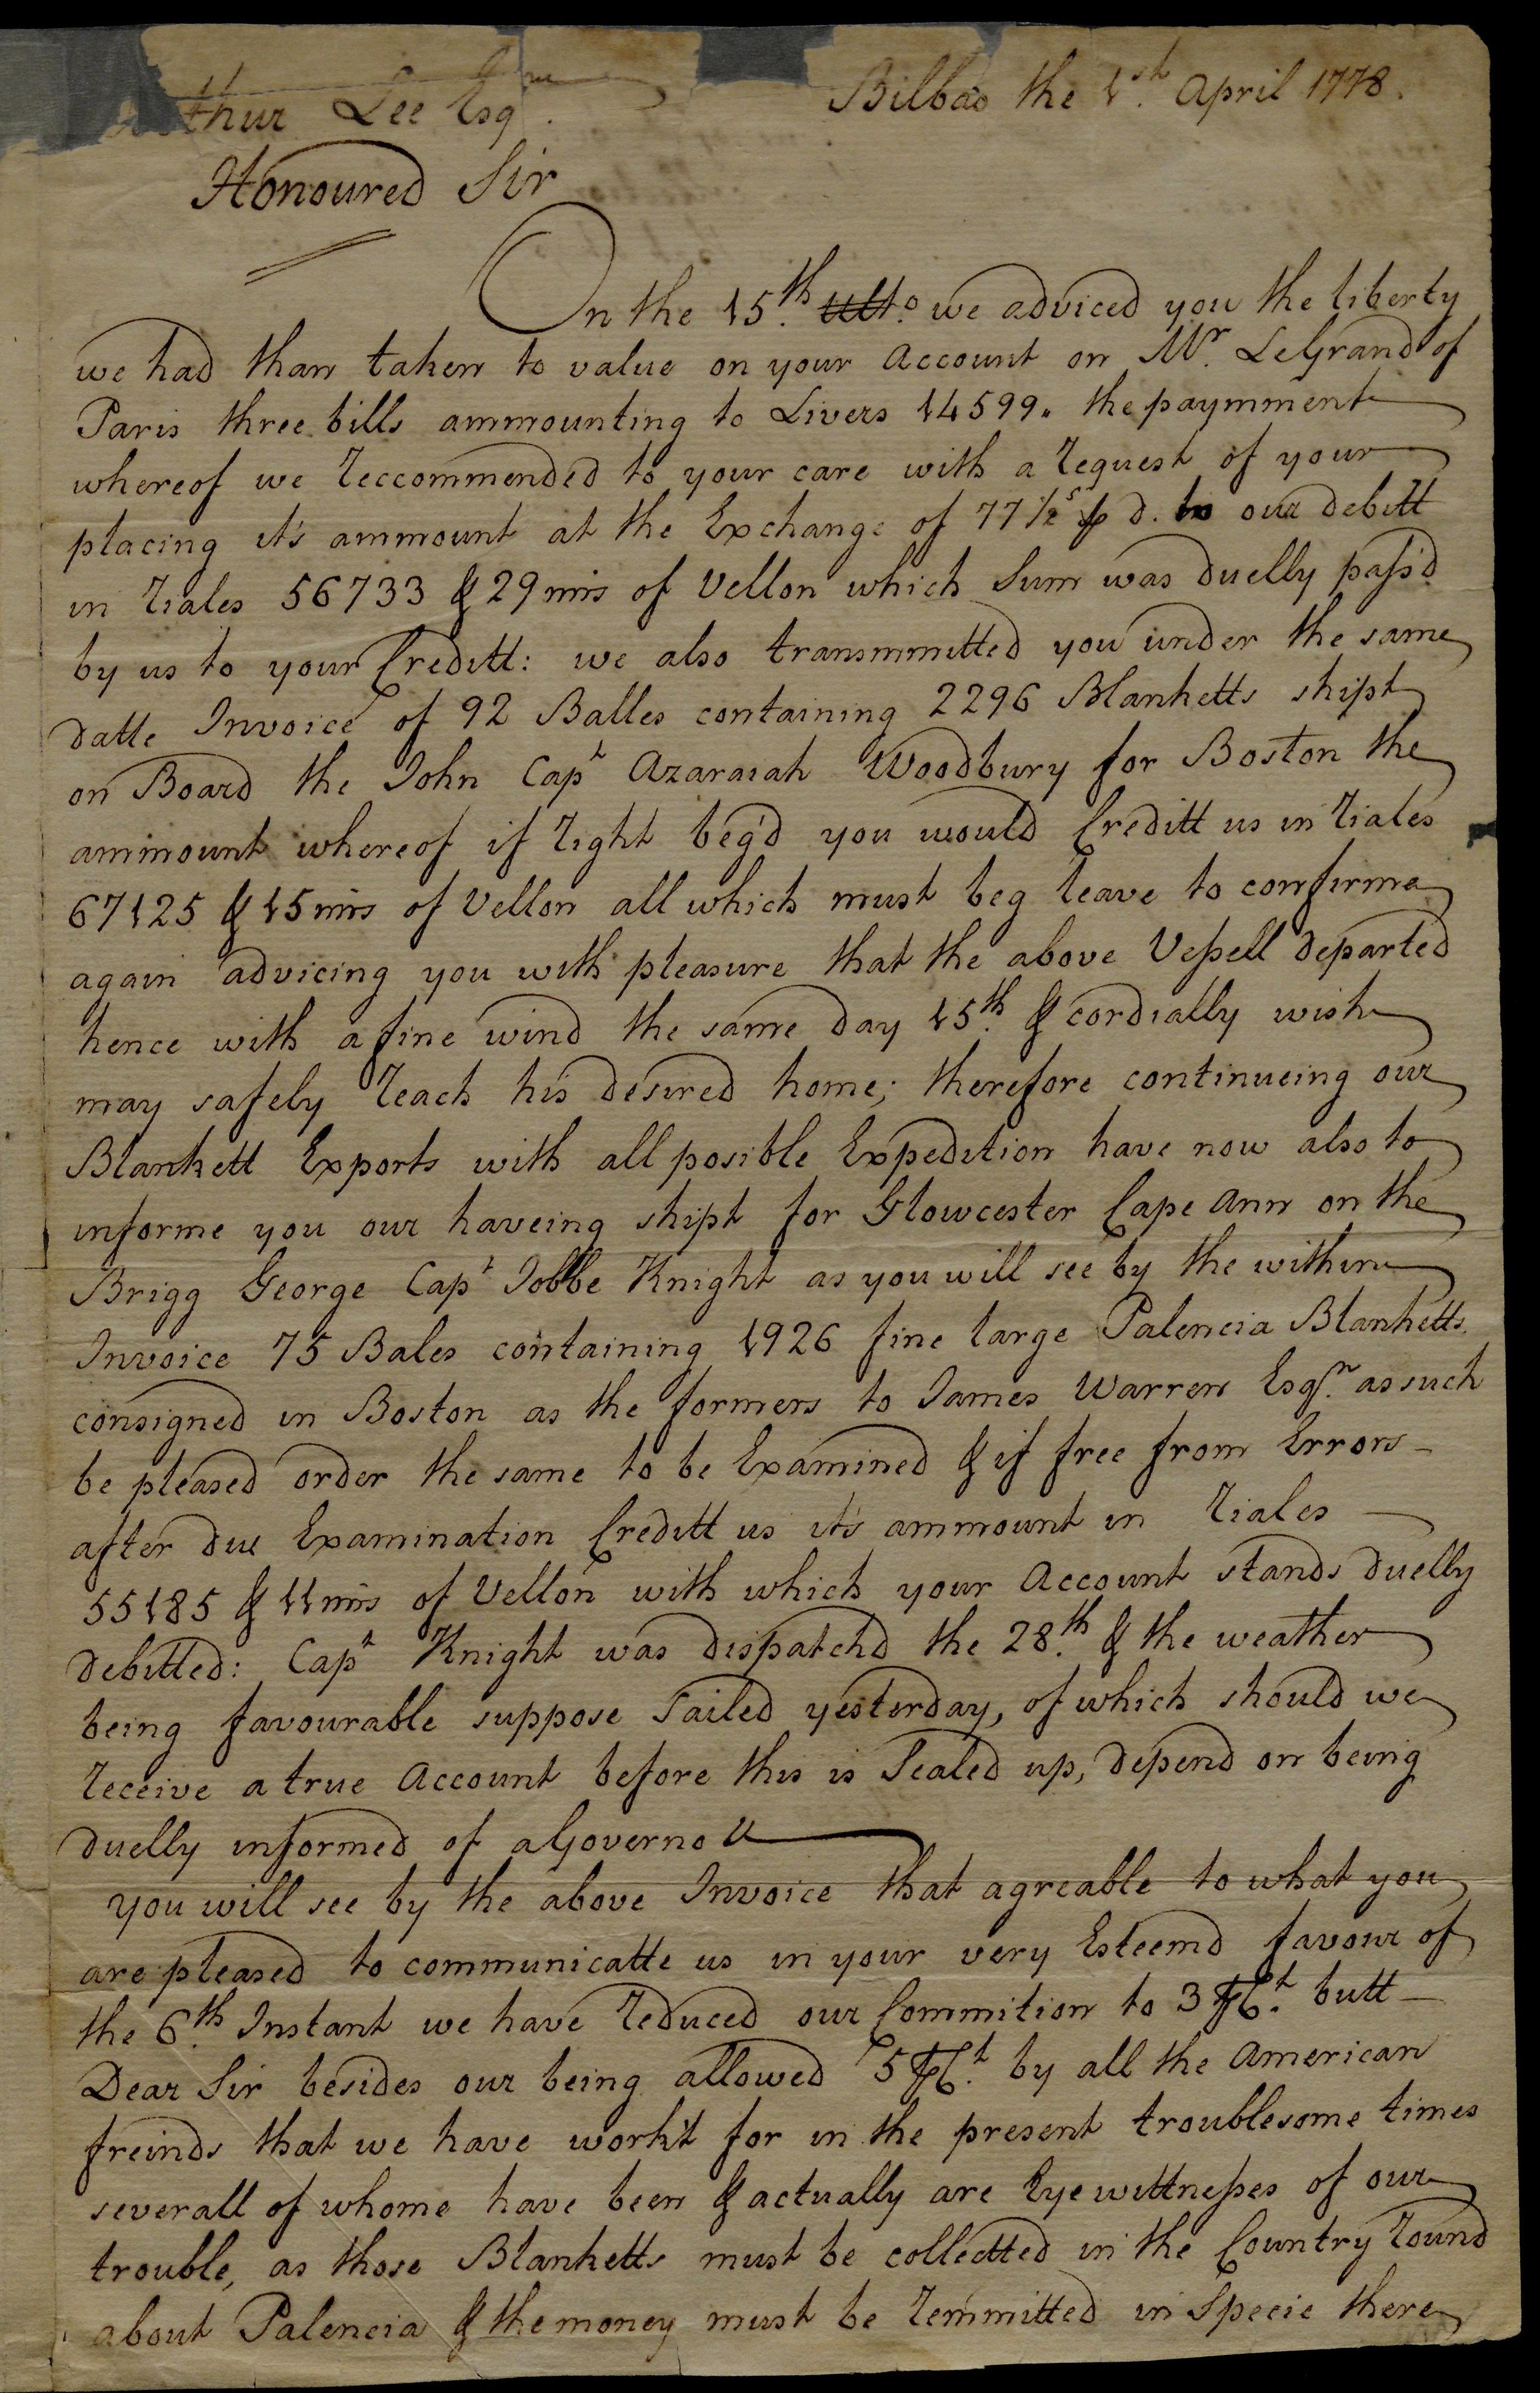 Arthur Lee Esqr. Bilbao the 1st. April 1778.
Honoured Sir
On the 15.th Ulto. we adviced you the liberty
we had than taken to value on your Account on Mr. LeGrand of
Paris three bills ammounting to Livers 14599. the paymment
whereof we reccommended to your care with a request of your
placing it's ammount at the Exchange of 77½s p d. to our debitt
in riales 56733 & 29 mrs of Vellon which Sum was duelly pass'd
by us to your Creditt: we also transmmitted you under the same
datte Invoice of 92 Balles containing 2296 Blanketts shipt
on Board the John Capt Azaraiah Woodbury for Boston the
ammount whereof if right beg'd you would Creditt us in riales
67125 & 15 mrs of Vellon all which must beg leave to confirme
again advicing you with pleasure that the above Vessell departed
hence with a fine wind the same day 15th. & cordially wish
may safely reach his desired home; therefore continueing our
Blankett Exports with all posible Expedition have now also to
informe you our haveing shipt for Glowcester Cape Ann on the
Brigg George Capt Jobbe Knight as you will see by the within
Invoice 75 Bales containing 1926 fine large Palencia Blanketts
consigned in Boston as the formers to James Warren Esqr. as such
be pleased order the same to be Examined & if free from Errors
after due Examination Creditt us it's ammount in riales
55185 & 11 mrs of Vellon with which your Account stands duelly
debitted: Capt Knight was dispatchd the 28.th & the weather
being favourable suppose Sailed yesterday, of which should we
receive a true Account before this is Sealed up, depend on being
duelly informed of a Governo
you will see by the above Invoice that agreable to what you
are pleased to communicatte us in your very Esteemd favour of
the 6.th Instant we have reduced our Commition to 3 p Ct. butt
Dear Sir besides our being allowed 5 p Ct. by all the American
freinds that we have work't for in the present troublesome times
severall of whome have been & actually are Eye wittnesses of our
trouble, as those Blanketts must be collectted in the Country round
about Palencia & the money must be remmitted in Specie there